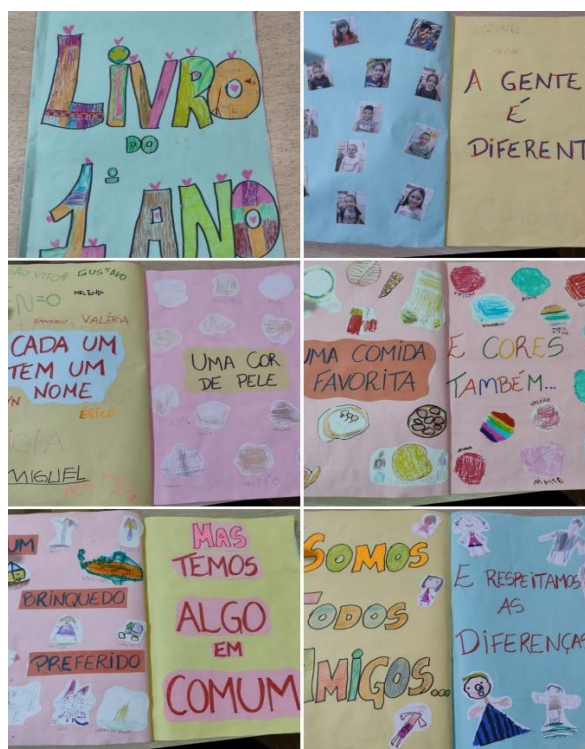 LIVRO
DO
1º ANO
A GENTE
É
DIFERENT
VITOR GUSTAVO
VALÉRIA
CADA UM
TEM UM
NOME
ÉRICO
MIGUEL
UMA COR
DE PELE
UMA COMIDA
FAVORITA
E CORES
TAMBÉM...
UM
BRINQUEDO
PREFERIDO
MAS
TEMOS
ALGO
EM
COMUM
SOMOS
TODOS
AMIGOS...
E RESPEITAMOS
AS
DIFERENÇAS